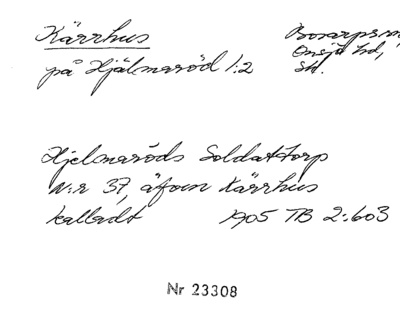 Kärrhus
Bosarps
på Hjälmaröd 1:2
Onsjö hd,
Sk.
Hjelmaröds Soldattorp
N:r 37, äfven Kärrhus
kalladt 1905 TB 2:603
Nr 23308